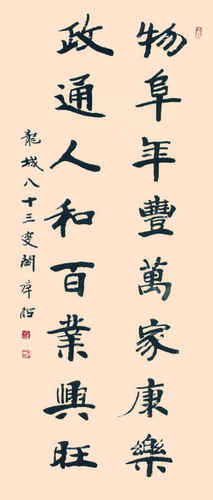 物阜年豐萬家康樂
政通人和百業興旺
龍城八十三叟闗